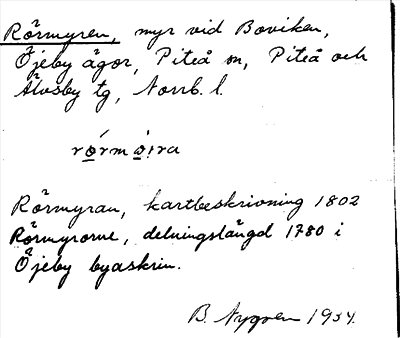 Rörmyren, myr vid Boviken,
Öjeby ägor, Piteå sn, Piteå och
Älvsby tg, Norrb. l.
rórmòira
Rörmyran, kartbeskrivning 1802
Rörmyrorne, delningslängd 1780 i
Öjeby byaskrin.
B. Nygren 1934.